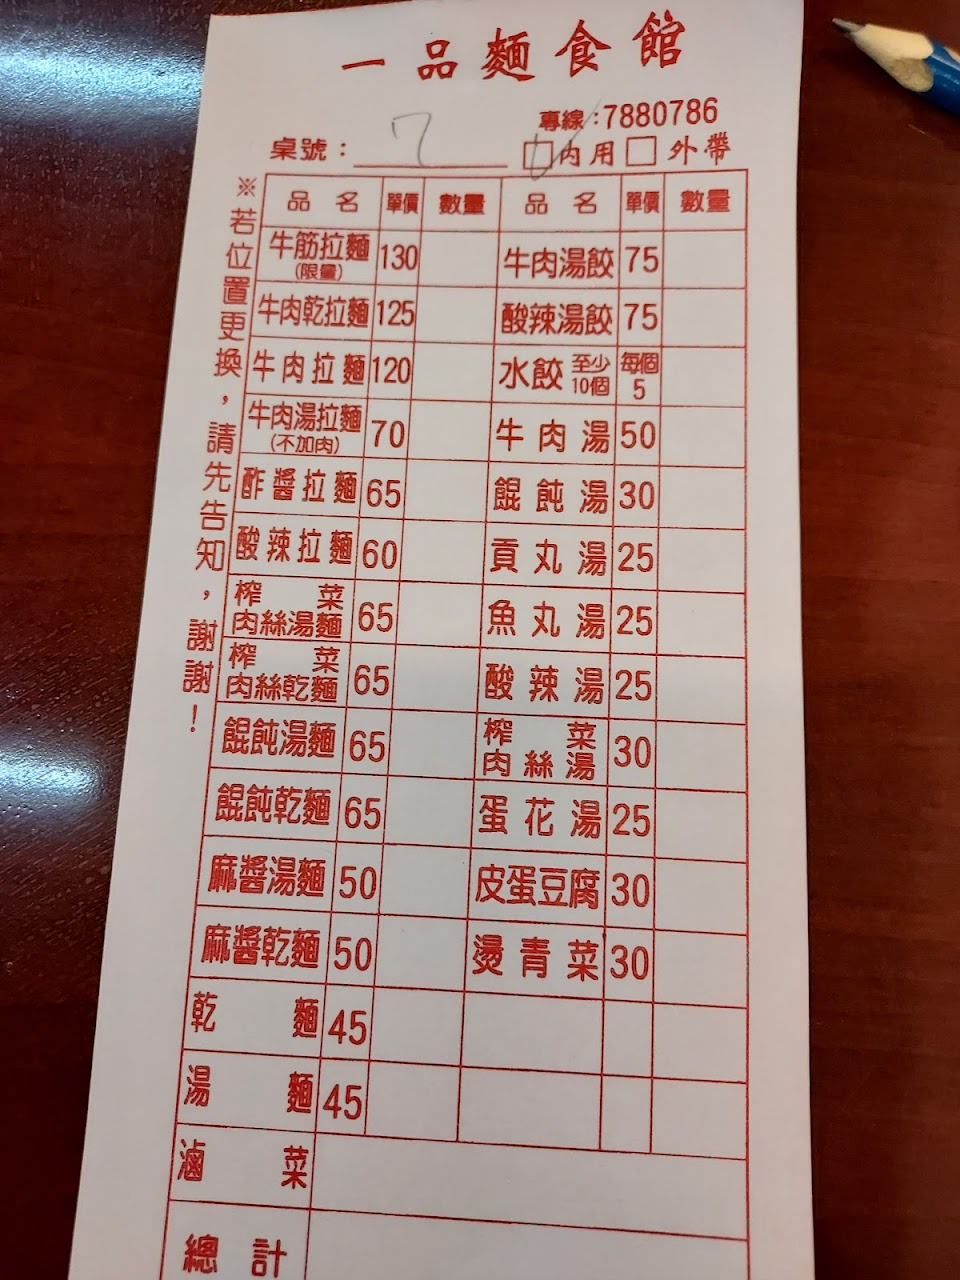 一品麵食館
專線:7880786
桌號: 7 內用 外帶
※若位置更換,請先告知,謝謝!
品名 單價 數量 品名 單價 數量
牛筋拉麵(限量) 130 牛肉湯餃 75
牛肉乾拉麵 125 酸辣湯餃 75
牛肉拉麵 120 水餃 至少10個 每個5
牛肉湯拉麵(不加肉) 70 牛肉湯 50
酢醬拉麵 65 餛飩湯 30
酸辣拉麵 60 貢丸湯 25
榨菜肉絲湯麵 65 魚丸湯 25
榨菜肉絲乾麵 65 酸辣湯 25
餛飩湯麵 65 榨菜肉絲湯 30
餛飩乾麵 65 蛋花湯 25
麻醬湯麵 50 皮蛋豆腐 30
麻醬乾麵 50 燙青菜 30
乾麵 45
湯麵 45
滷菜
總計